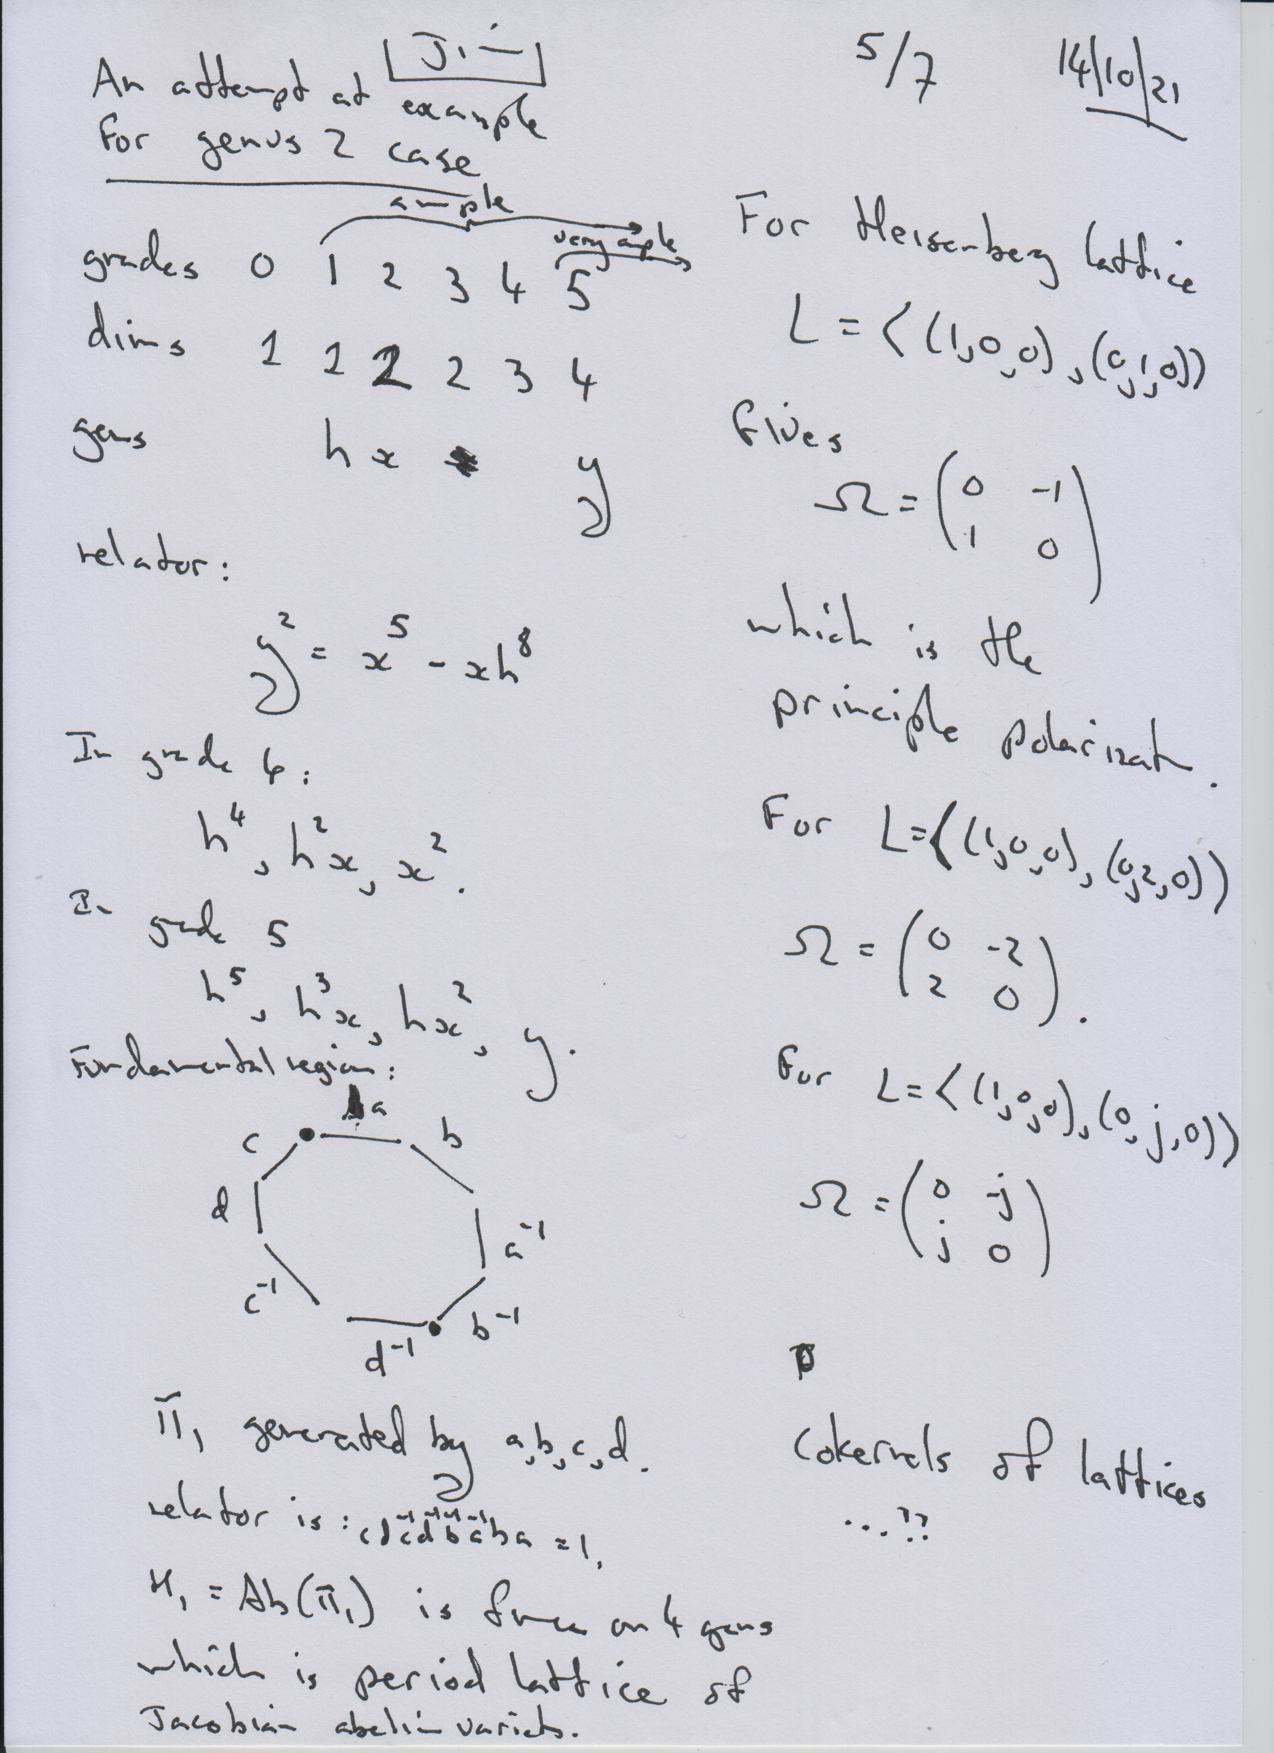 An attempt at
example
For genus 2 case
ample
very ample
grades 0 1 2 3 4 5
dims 1 1 2 2 3 4
gens h x y
relator:
y² = x⁵ - xh⁸
In grade 4:
h⁴, h²x, x².
In grade 5
h⁵, h³x, hx², y.
Fundamental region:
a
c b
d a⁻¹
c⁻¹ b⁻¹
d⁻¹
π₁ generated by a,b,c,d.
relator is: cdc⁻¹d⁻¹b⁻¹a⁻¹ba = 1.
H₁ = Ab(π₁) is free on 4 gens
which is period lattice of
Jacobian abelian variety.
5/7 14/10/21
For Heisenberg lattice
L = <(1,0,0), (0,1,0)>
Gives
Ω = (0 -1
1 0)
which is the
principle polarizat.
For L = <(1,0,0), (0,2,0)>
Ω = (0 -2
2 0).
For L = <(1,0,0), (0,j,0)>
Ω = (0 -j
j 0)
Cokernels of lattices
...??